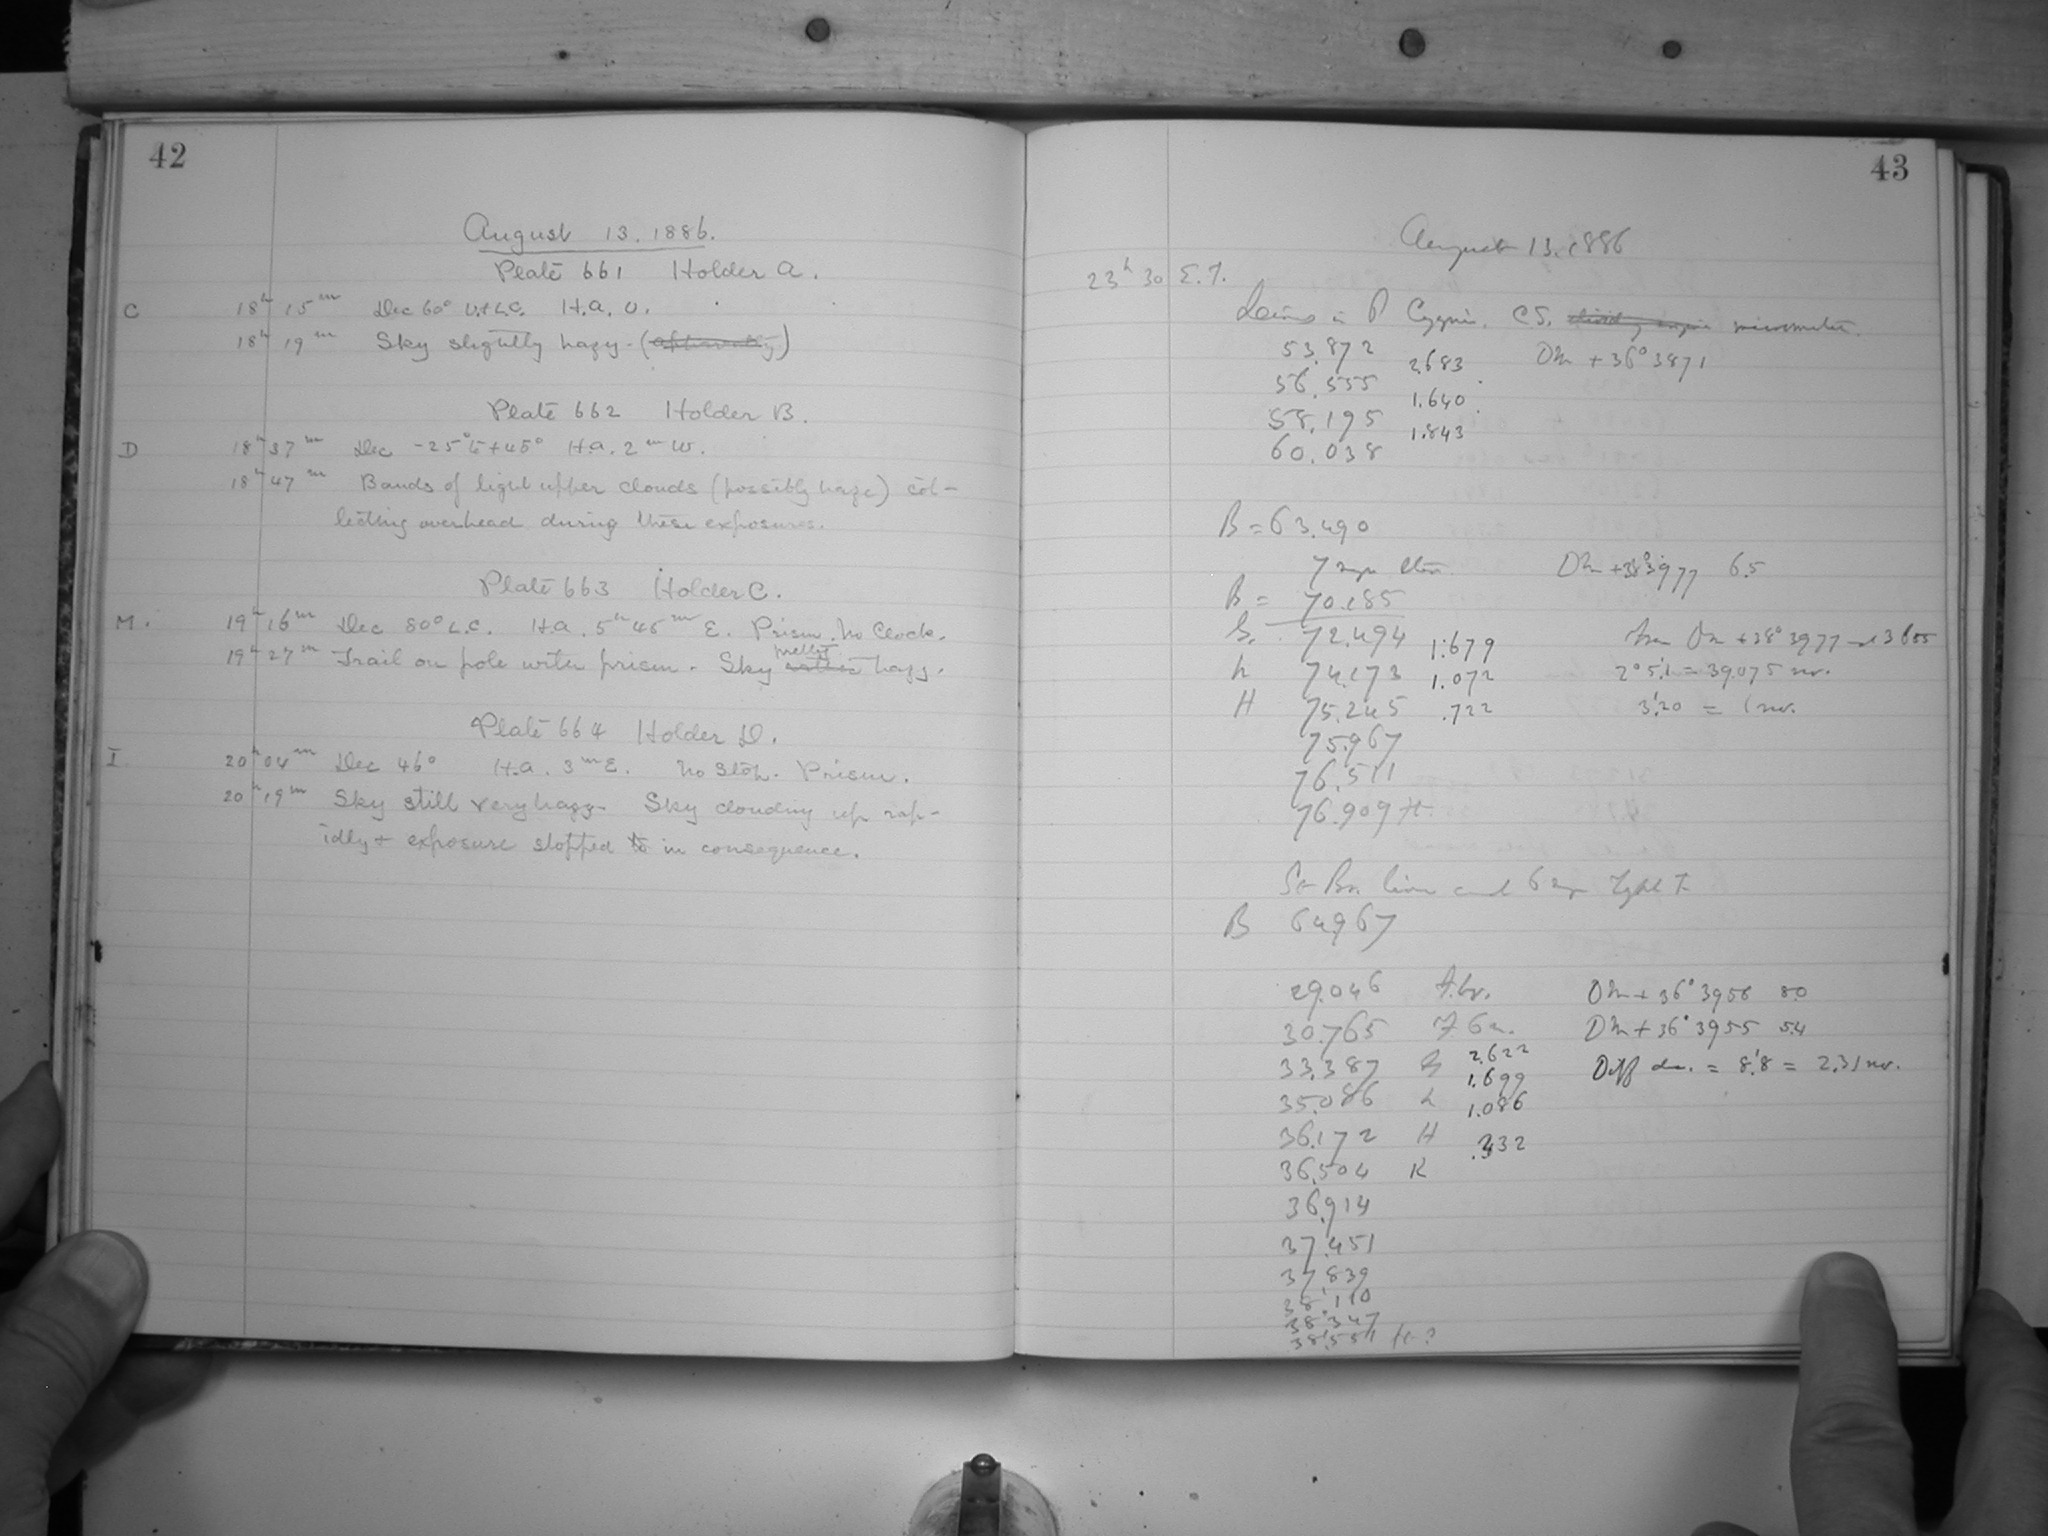 42
August 13. 1886.
Plate 661 Holder A.
C 18h 15m Dec 60° U.+L.C. H.A. 0.
18h 19m Sky slightly hazy.
Plate 662 Holder B.
D 18h 37m Dec -25° to +45° H.A. 2m W.
18h 47m Bands of light upper clouds (possibly haze) col-
lecting overhead during these exposures.
Plate 663 Holder C.
M. 19h 16m Dec 80° L.C. H.A. 5h 45m E. Prism. No Clock.
19h 27m Trail on pole with prism. Sky pretty hazy.
Plate 664 Holder D.
I 20h 04m Dec 46° H.A. 3m E. No Stop. Prism.
20h 19m Sky still very hazy. Sky clouding up rap-
idly + exposure stopped in consequence.
43
August 13. 1886
23h 30 E.T.
Lines in P Cygni. C.S. micrometer.
53.872 2.683 DM + 36° 3871
56.555 1.640
58.195 1.843
60.038
B = 63.490
7 mgn DM +38° 3977 6.5
B = 70.185
G. 72.494 1.679 DM +38° 3977 3655
h 74.173 1.072 2° 5'.1 = 39.075 rev.
H 75.245 .722 3'.20 = 1 rev.
75.967
76.511
76.909 H.
Br. line and 6 mgn
B 64.967
29.046 F. br. DM + 36° 3956 8.0
30.765 F 6 m. DM + 36° 3955 5.4
33.387 G 2.622 Diff dec. = 8'.8 = 2.31 rev.
35.086 h 1.699
36.172 H 1.086
36.504 K .332
36.914
37.451
37.839
38.110
38.347
38.551 H?